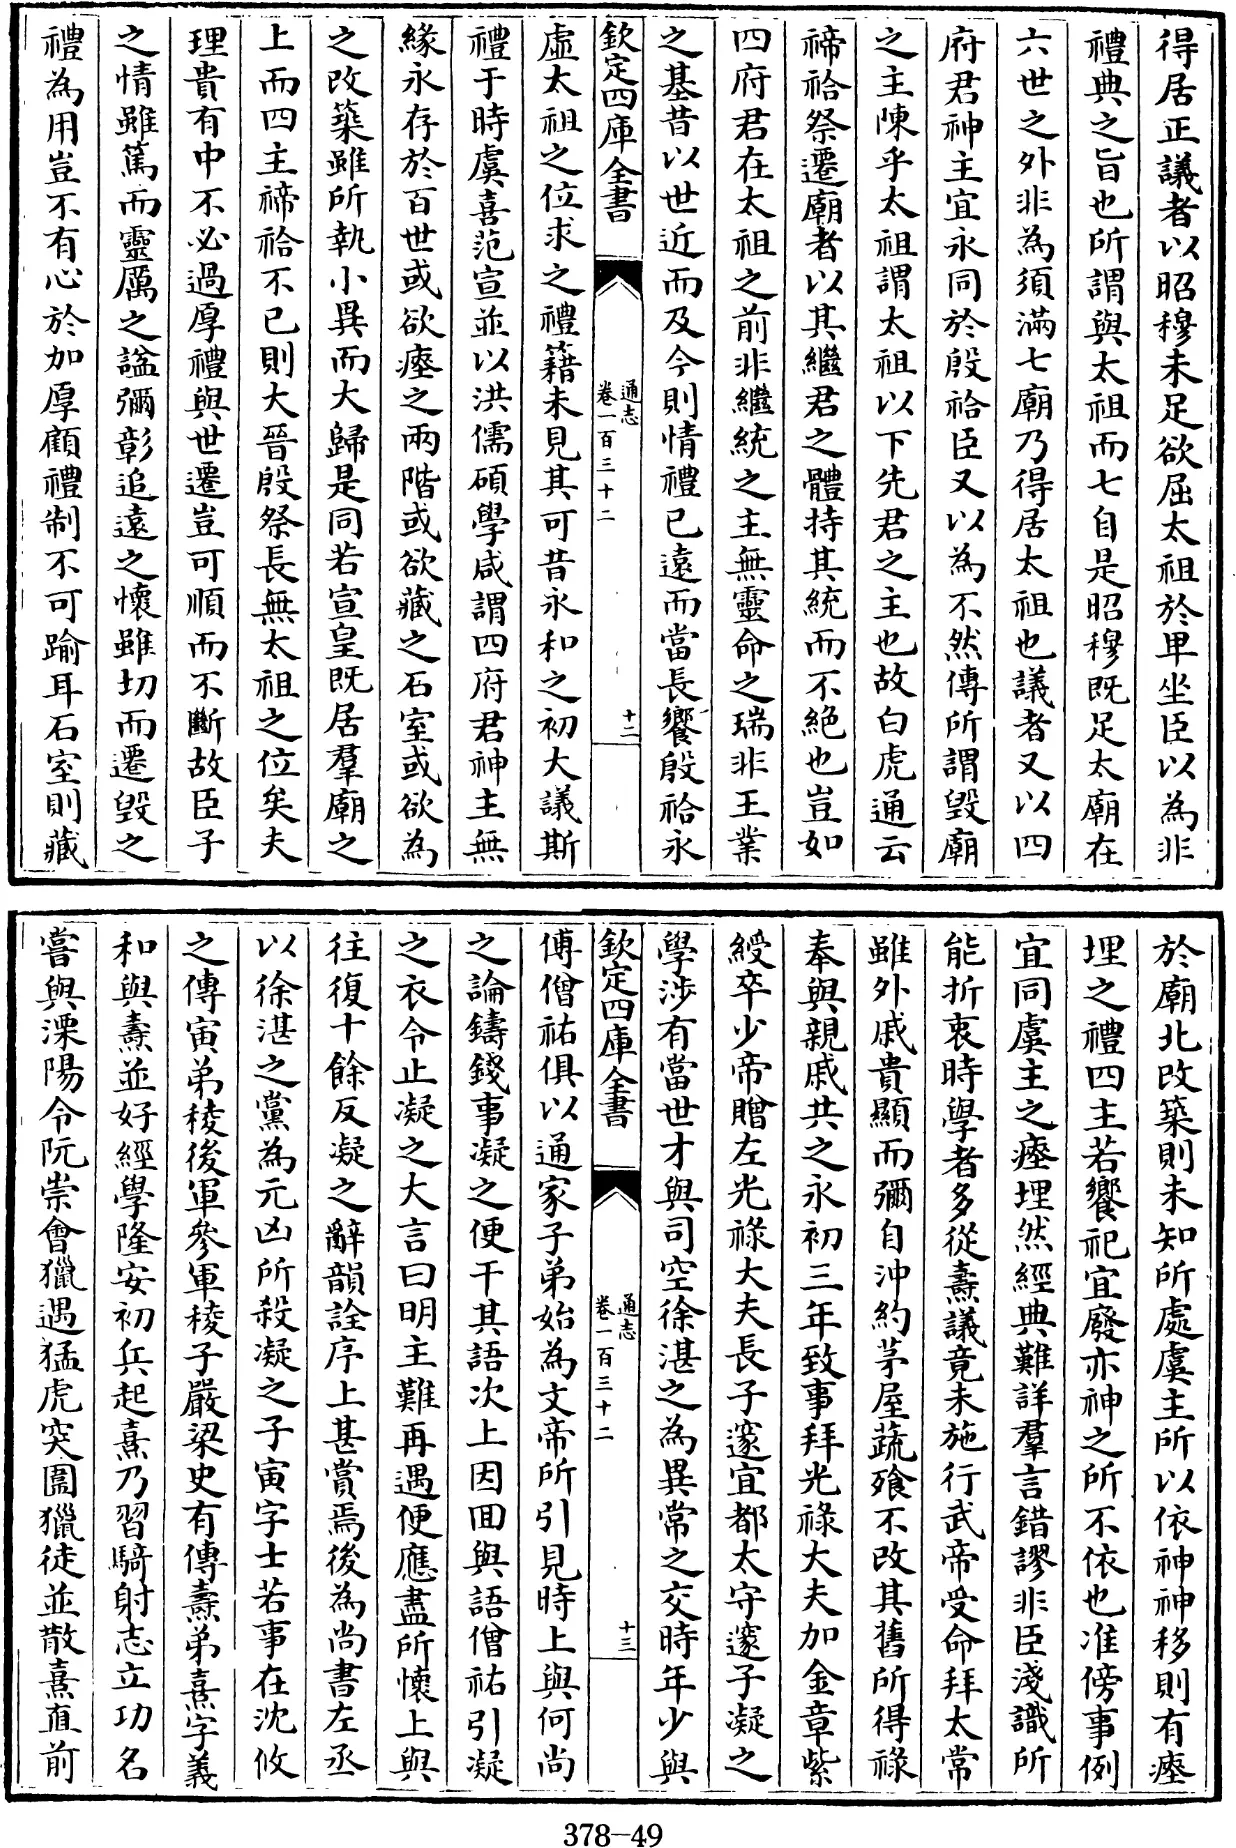 得居正議者以昭穆未足欲屈太祖於卑坐臣以為非
禮典之旨也所謂與太祖而七自是昭穆既足太廟在
六世之外非為須滿七廟乃得居太祖也議者又以四
府君神主宜永同於殷祫臣又以為不然傳所謂毀廟
之主陳乎太祖謂太祖以下先君之主也故白虎通云
禘祫祭遷廟者以其繼君之體持其統而不絶也豈如
四府君在太祖之前非繼統之主無靈命之瑞非王業
之基昔以世近而及今則情禮已遠而當長饗殷祫永
欽定四庫全書
通志
卷一百三十二
十二
虛太祖之位求之禮籍未見其可昔永和之初大議斯
禮于時虞喜范宣並以洪儒碩學咸謂四府君神主無
緣永存於百世或欲瘞之兩階或欲藏之石室或欲為
之改築雖所執小異而大歸是同若宣皇既居羣廟之
上而四主禘祫不已則大晉殷祭長無太祖之位矣夫
理貴有中不必過厚禮與世遷豈可順而不斷故臣子
之情雖篤而靈厲之諡彌彰追遠之懷雖切而遷毀之
禮為用豈不有心於加厚顧禮制不可踰耳石室則藏
於廟北改築則未知所處虞主所以依神神移則有瘞
埋之禮四主若饗祀宜廢亦神之所不依也准傍事例
宜同虞主之瘞埋然經典難詳羣言錯謬非臣淺識所
能折衷時學者多從燾議竟未施行武帝受命拜太常
雖外戚貴顯而彌自沖約茅屋蔬飡不改其舊所得祿
奉與親戚共之永初三年致事拜光祿大夫加金章紫
綬卒少帝贈左光祿大夫長子邃宜都太守邃子凝之
學涉有當世才與司空徐湛之為異常之交時年少與
欽定四庫全書
通志
卷一百三十二
十三
傅僧祐俱以通家子弟始為文帝所引見時上與何尚
之論鑄錢事凝之便干其語次上因囬與語僧祐引凝
之衣令止凝之大言曰明主難再遇便應盡所懷上與
往復十餘反凝之辭韻詮序上甚賞焉後為尚書左丞
以徐湛之黨為元凶所殺凝之子寅字士若事在沈攸
之傳寅弟稜後軍參軍稜子嚴梁史有傳燾弟熹字義
和與燾並好經學隆安初兵起熹乃習騎射志立功名
嘗與溧陽令阮崇會獵遇猛虎突圍獵徒並散熹直前
378-49